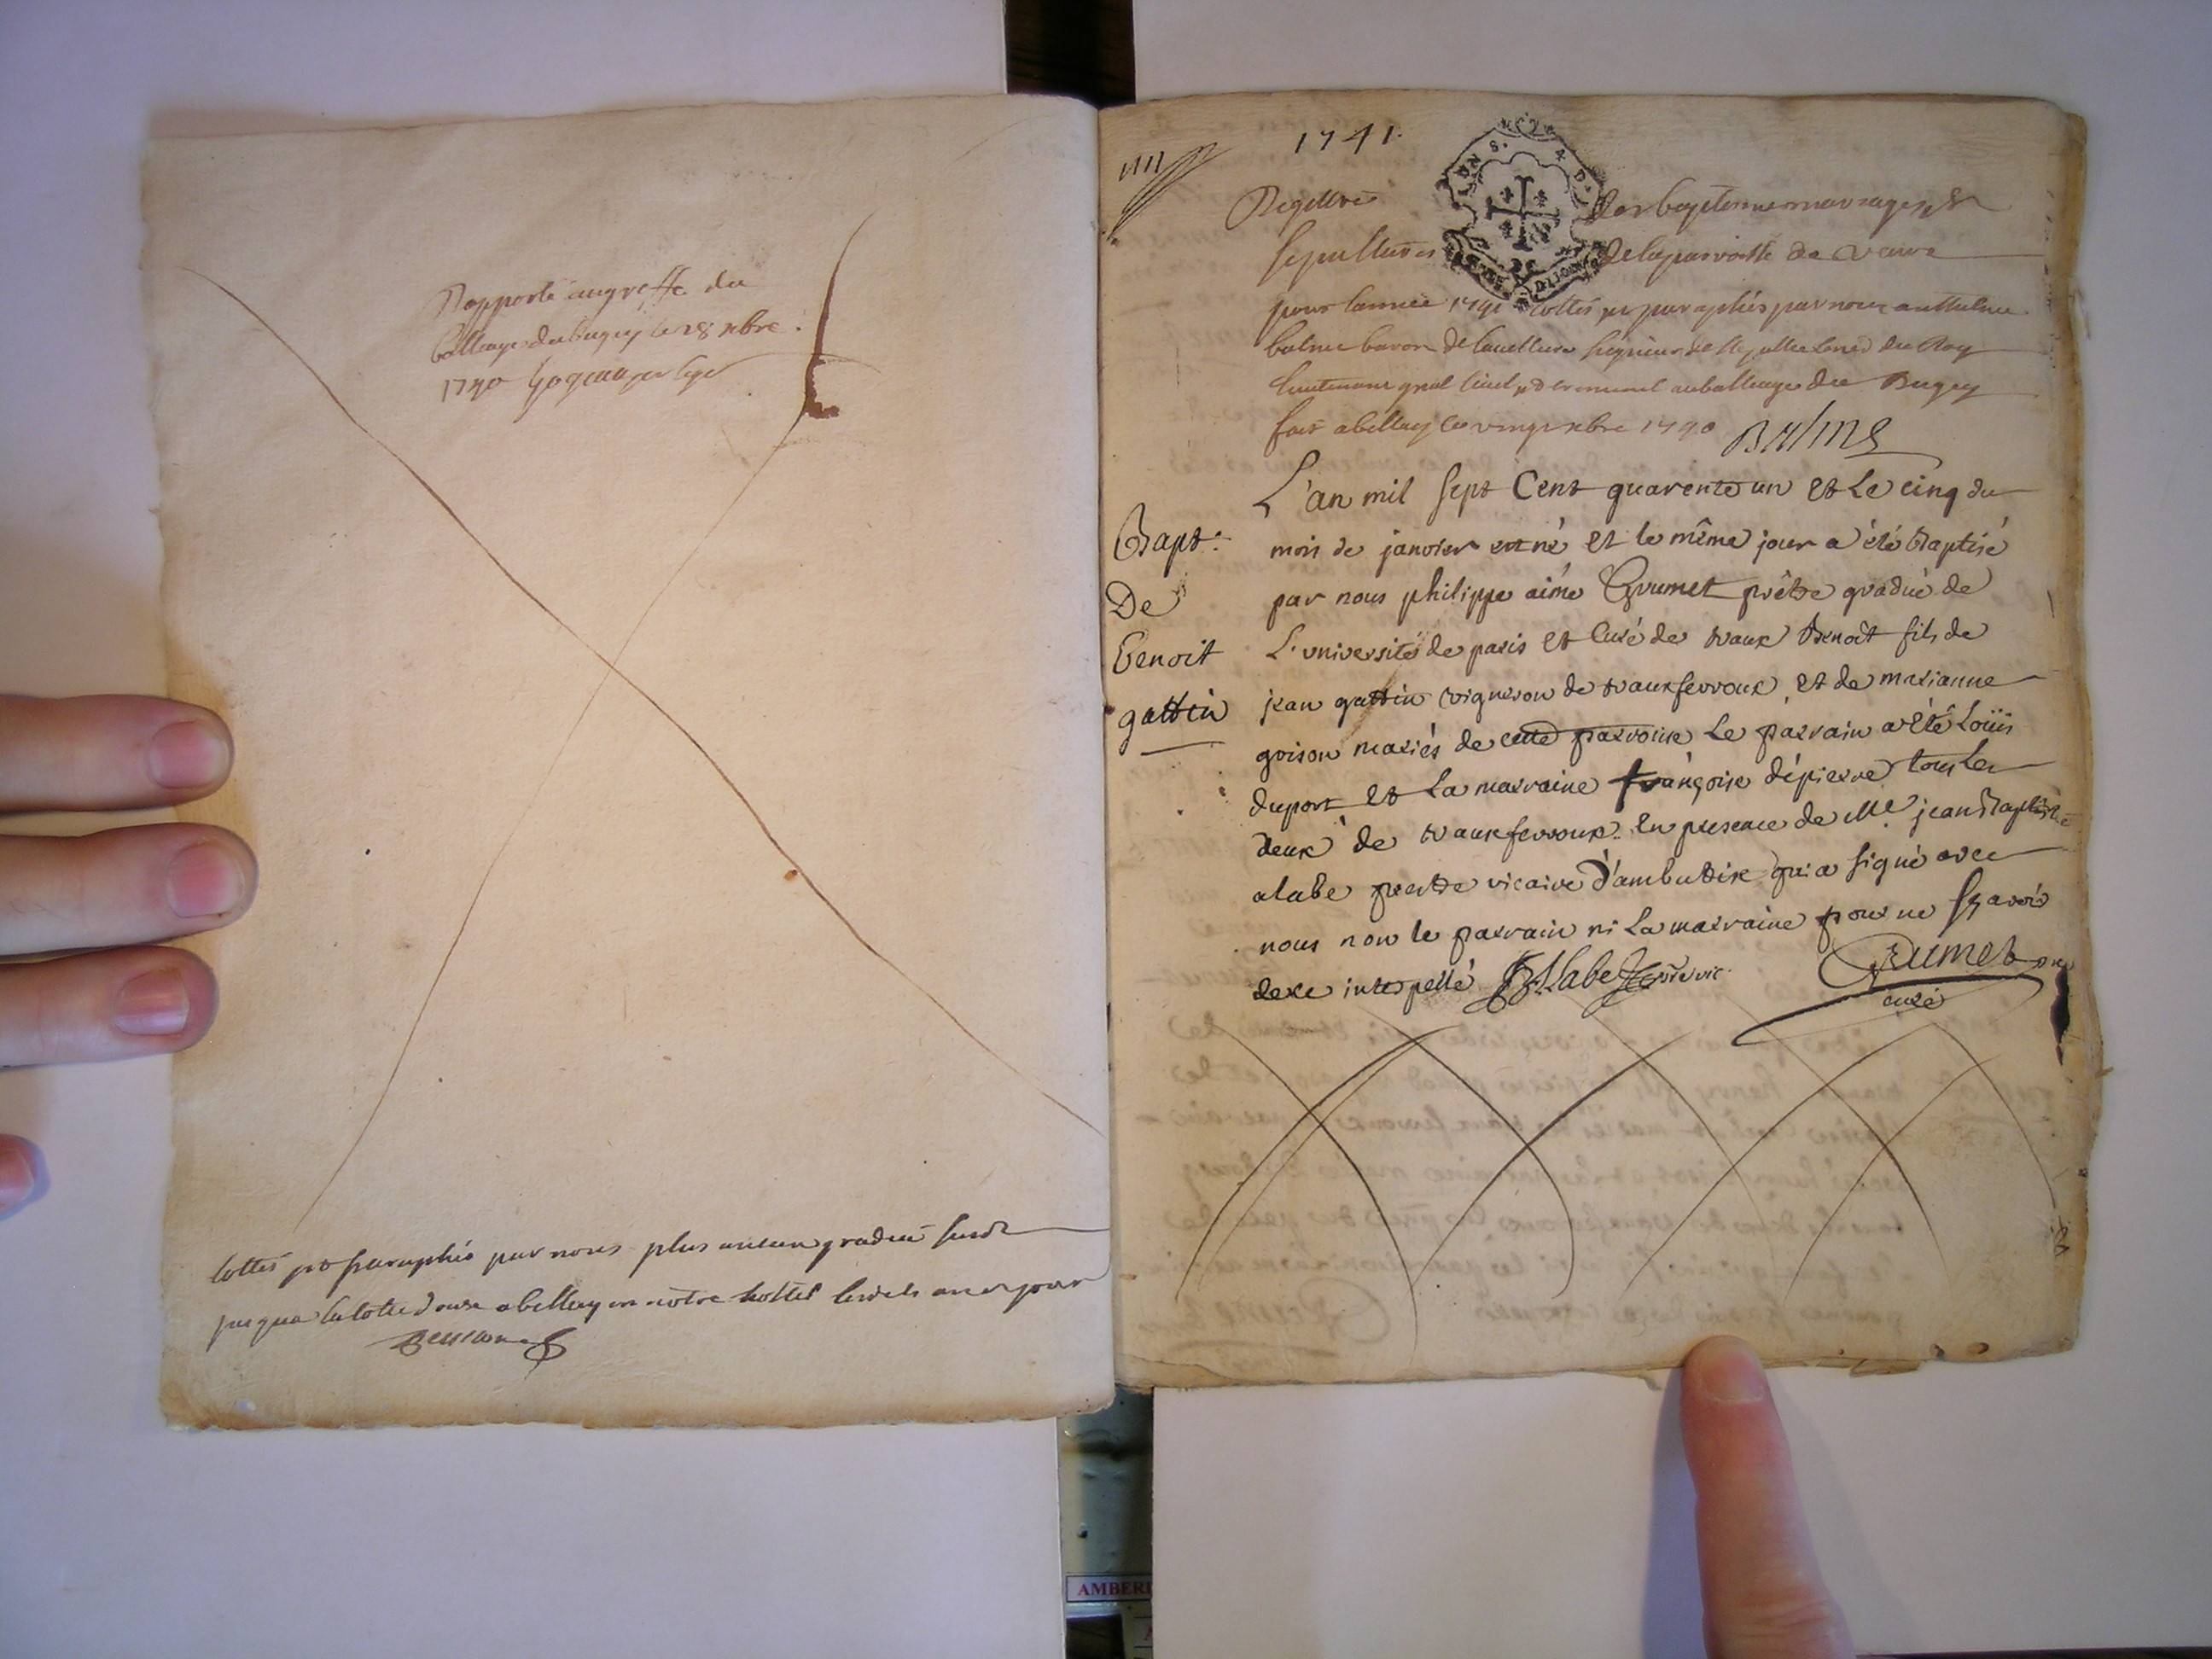 Rapporté au greffe du
balliage du bugey le 28 xbre
1740
cottés et paraphés par nous plus ancien gradué
jusqua la cotte douze a bellay en notre hottel an et jour
1741
Registre des baptemes mariages et
sepultures de la parroisse de Vaux
pour lannée 1741 cottés et paraphés par nous anthelme
balme baron de seigneur de du Roy
lieutenant gnal civil et criminel au balliage du Bugey
fait a bellay le vingt xbre 1740 Balme
L'an mil sept Cent quarente un et Le cinq du
mois de janvier est né et le même jour a été Baptisé
par nous philippe aimé Grumet prêtre gradué de
L'université de paris et Curé de vaux Benoît fils de
jean gattin vigneron de vauxfevroux et de marianne
goison mariés de cette parroisse Le parrain a été Loüis
duport et La marraine françoise dépierre tous les
deux de vauxfevroux en presence de Me jean Baptiste
alabe prettre vicaire d'ambutrix qui a signé avec
nous non le parrain ni La marraine pour ne sçavoir
dece interpellé JB Alabe vic. Grumet
curé
Bapt:
De
Benoit
gattin
AMBER